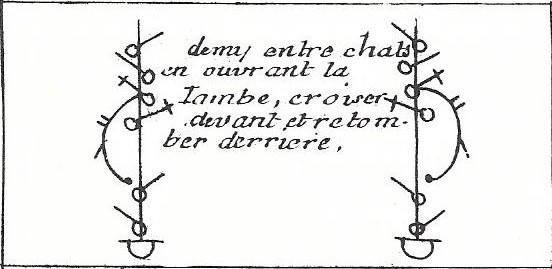 demy entre chats
en ouvrant la
Iambe, croiser
devant et retom-
ber derriere.